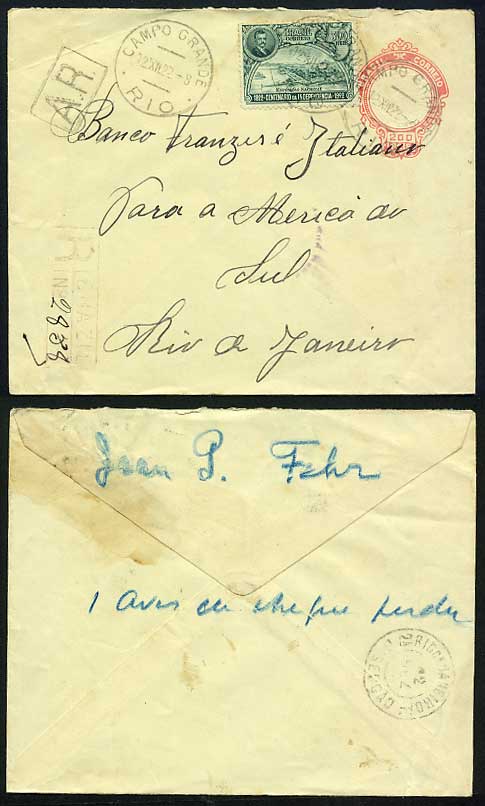 A.R.
CAMPO GRANDE
12 XII 22 - 8
RIO
BRASIL
CORREIO
300
REIS
1822-CENTENARIO DA INDEPENDENCIA-1922
BRASIL CORREIO
CAMPO GRANDE
200
Banco Franzes é Italiano
Para a Merica do
Sul
Rio de Janeiro
R
Jean P. Fehr
1 avis de cheque perdu
RIO DE JANEIRO